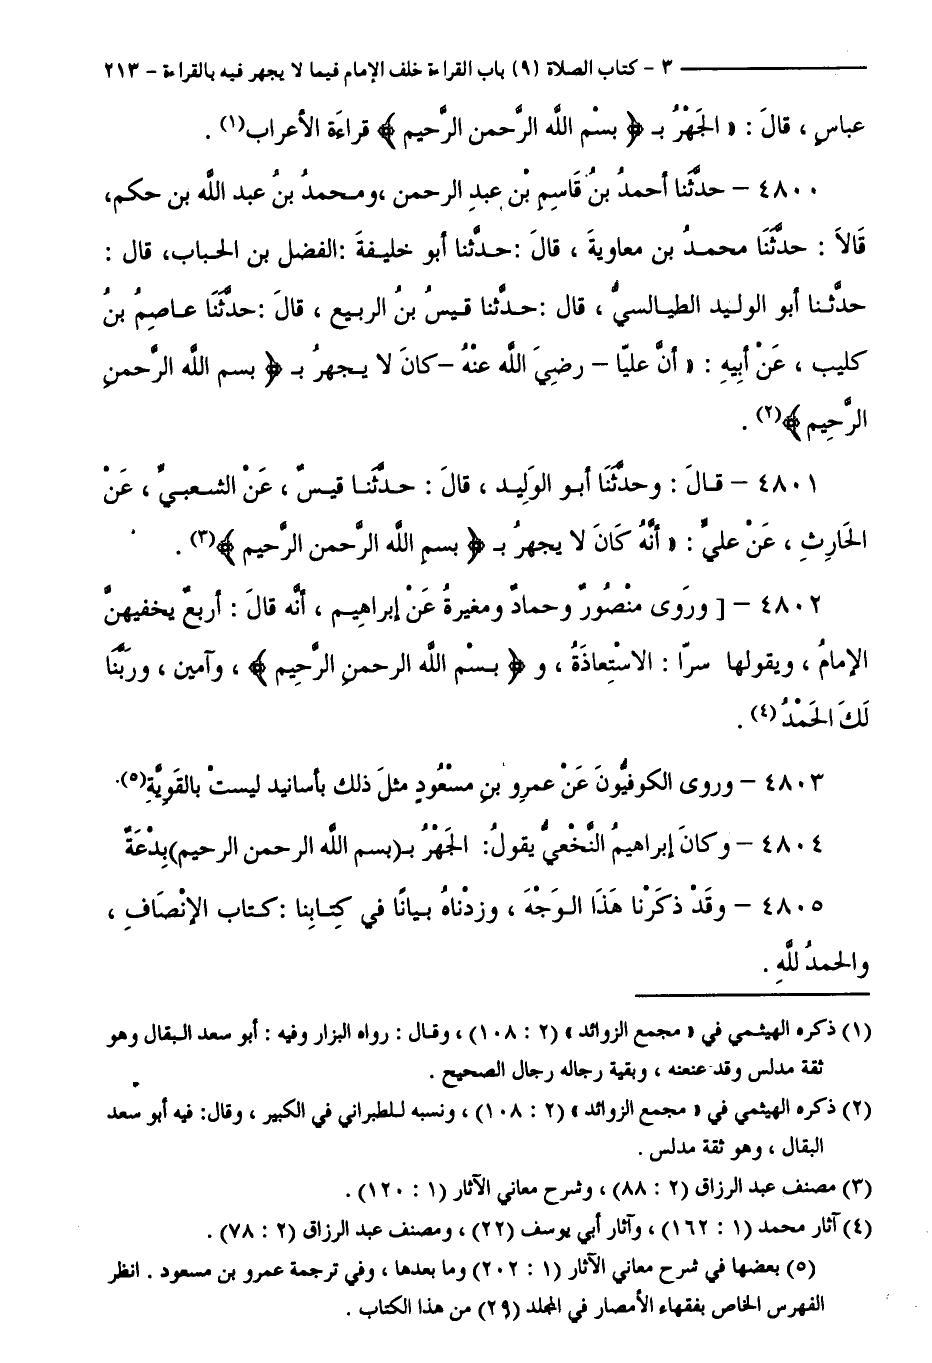 ٣ - كتاب الصلاة (٩) باب القراءة خلف الإمام فيما لا يجهر فيه بالقراءة - ٢١٣
عباسٍ ، قالَ : « الجَهْرُ بـ ﴿ بسْمِ اللَّه الرَّحمن الرَّحيم ﴾ قراءَة الأعراب(١) .
٤٨٠٠ - حدَّثَنا أحمدُ بنُ قَاسِمِ بْن عبدِ الرحمن ،ومحمدُ بنُ عبد اللَّه بن حكم،
قَالاَ : حدَّثَنَا محمدُ بن معاويةَ ، قالَ :حدَّثنا أبو خليفةَ :الفضل بن الحباب، قال :
حدثَّنا أبو الوليد الطيالسيُّ ، قال :حدَّثنا قيسُ بنُ الربيع ، قالَ :حدَّثَنَا عاصِمُ بنُ
كليب ، عَنْ أبِيهِ : « أنَّ عليّا - رضيَ اللَّه عنْهُ -كانَ لا يجهرُ بـ ﴿ بسم اللَّه الرَّحمنِ
الرَّحِيم ﴾(٢) .
٤٨٠١ - قالَ : وحدَّثَنَا أبو الوَلِيد ، قالَ : حدَّثَنا قيسٌ ، عَنْ الشعبيِّ ، عَنْ
الحَارِثِ ، عَنْ عليٍّ : « أنَّهُ كَانَ لا يجهرُ بـ ﴿ بسمِ اللَّه الرَّحمن الرَّحيم ﴾(٣) .
٤٨٠٢ - [ ورَوى منْصُورٌ وحمادٌ ومغيرةُ عَنْ إبراهِيم ، أنَّه قالَ : أربعٌ يخفيهنَّ
الإمامُ ، ويقولها سرّا : الاسْتِعاذَةُ ، و ﴿ بسْم اللَّه الرحمنِ الرَّحِيم ﴾ ، وآمين ، وربَّنَا
لَكَ الحَمْدُ(٤) .
٤٨٠٣ - وروى الكوفيُّونَ عَنْ عمرو بنِ مسْعُودٍ مثلَ ذلك بأسانيد ليستْ بالقَوِيَّةِ(٥).
٤٨٠٤ - وكانَ إبراهيمُ النَّخْعيُّ يقولُ: الجَهْرُ بـ(بسم اللَّه الرحمن الرحيم)بِدْعَةٌ
٤٨٠٥ - وقَدْ ذكَرْنا هَذَا الوَجْهَ ، وزدْناهُ بيانًا في كِتابِنا :كتاب الإنْصَافِ ،
والحمدُ للَّهِ .
(١) ذكره الهيثمي في « مجمع الزوائد » (٢ : ١٠٨) ، وقال : رواه البزار وفيه : أبو سعد البقال وهو
ثقة مدلس وقد عنعنه ، وبقية رجاله رجال الصحيح .
(٢) ذكره الهيثمي في « مجمع الزوائد » (٢ : ١٠٨) ، ونسبه للطبراني في الكبير ، وقال: فيه أبو سعد
البقال ، وهو ثقة مدلس .
(٣) مصنف عبد الرزاق (٢ : ٨٨) ، وشرح معاني الآثار (١ : ١٢٠) .
(٤) آثار محمد (١ : ١٦٢) ، وآثار أبي يوسف (٢٢) ، ومصنف عبد الرزاق (٢ : ٧٨) .
(٥) بعضها في شرح معاني الآثار (١ : ٢٠٢) وما بعدها ، وفي ترجمة عمرو بن مسعود . انظر
الفهرس الخاص بفقهاء الأمصار في المجلد (٢٩) من هذا الكتاب .